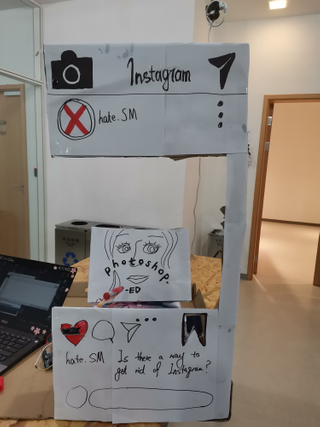 Instagram
hate.SM
photoshop.
-ED
hate.SM Is there a way to
get rid of Instagram?